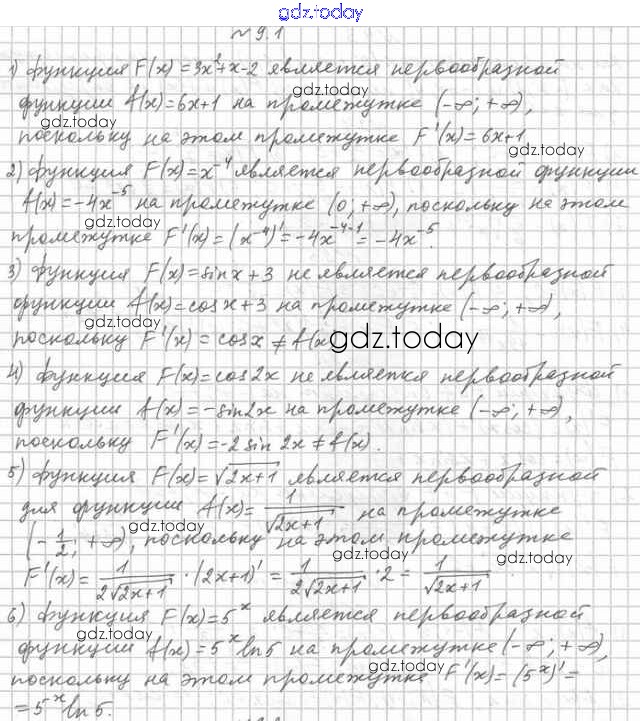 gdz.today
№ 9.1
1) Функция F(x)=3x²+x-2 является первообразной
gdz.today
функции f(x)=6x+1 на промежутке (-∞; +∞),
gdz.today
поскольку на этом промежутке F'(x)=6x+1
gdz.today
2) Функция F(x)=x⁻⁴ является первообразной функции
gdz.today
f(x)=-4x⁻⁵ на промежутке (0; +∞), поскольку на этом
gdz.today
промежутке F'(x)=(x⁻⁴)'=-4x⁻⁴⁻¹=-4x⁻⁵.
3) Функция F(x)=sin x+3 не является первообразной
gdz.today
функции f(x)=cos x+3 на промежутке (-∞; +∞),
gdz.today
поскольку F'(x)=cos x≠f(x
gdz.today
4) Функция F(x)=cos 2x не является первообразной
gdz.today
функции f(x)=-sin 2x на промежутке (-∞; +∞),
поскольку F'(x)=-2 sin 2x≠f(x).
gdz.today
5) Функция F(x)=√(2x+1) является первообразной
gdz.today
для функции f(x)=1/√(2x+1) на промежутке
(-1/2; +∞), поскольку на этом промежутке
gdz.today
gdz.today
F'(x)=1/(2√(2x+1))·(2x+1)'=1/(2√(2x+1))·2=1/√(2x+1)
6) Функция F(x)=5ˣ является первообразной
gdz.today
gdz.today
функции f(x)=5ˣ ln 5 на промежутке (-∞; +∞),
gdz.today
поскольку на этом промежутке F'(x)=(5ˣ)'=
=5ˣ ln 5.